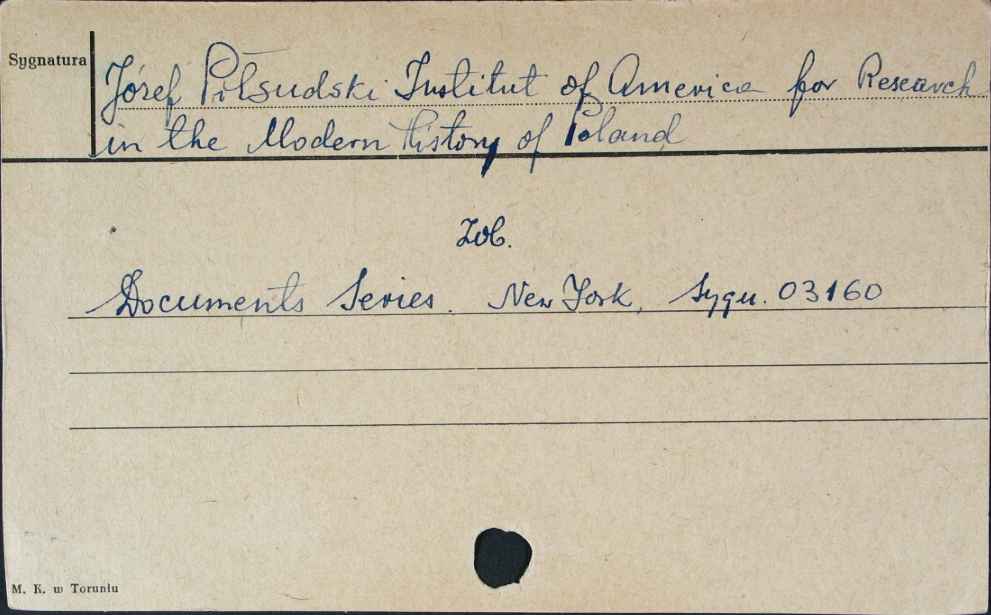 Sygnatura
Józef Piłsudski Institut of America for Research
in the Modern History of Poland
Zob.
Documents Series. New York, Sygn. 03160
M. K. w Toruniu